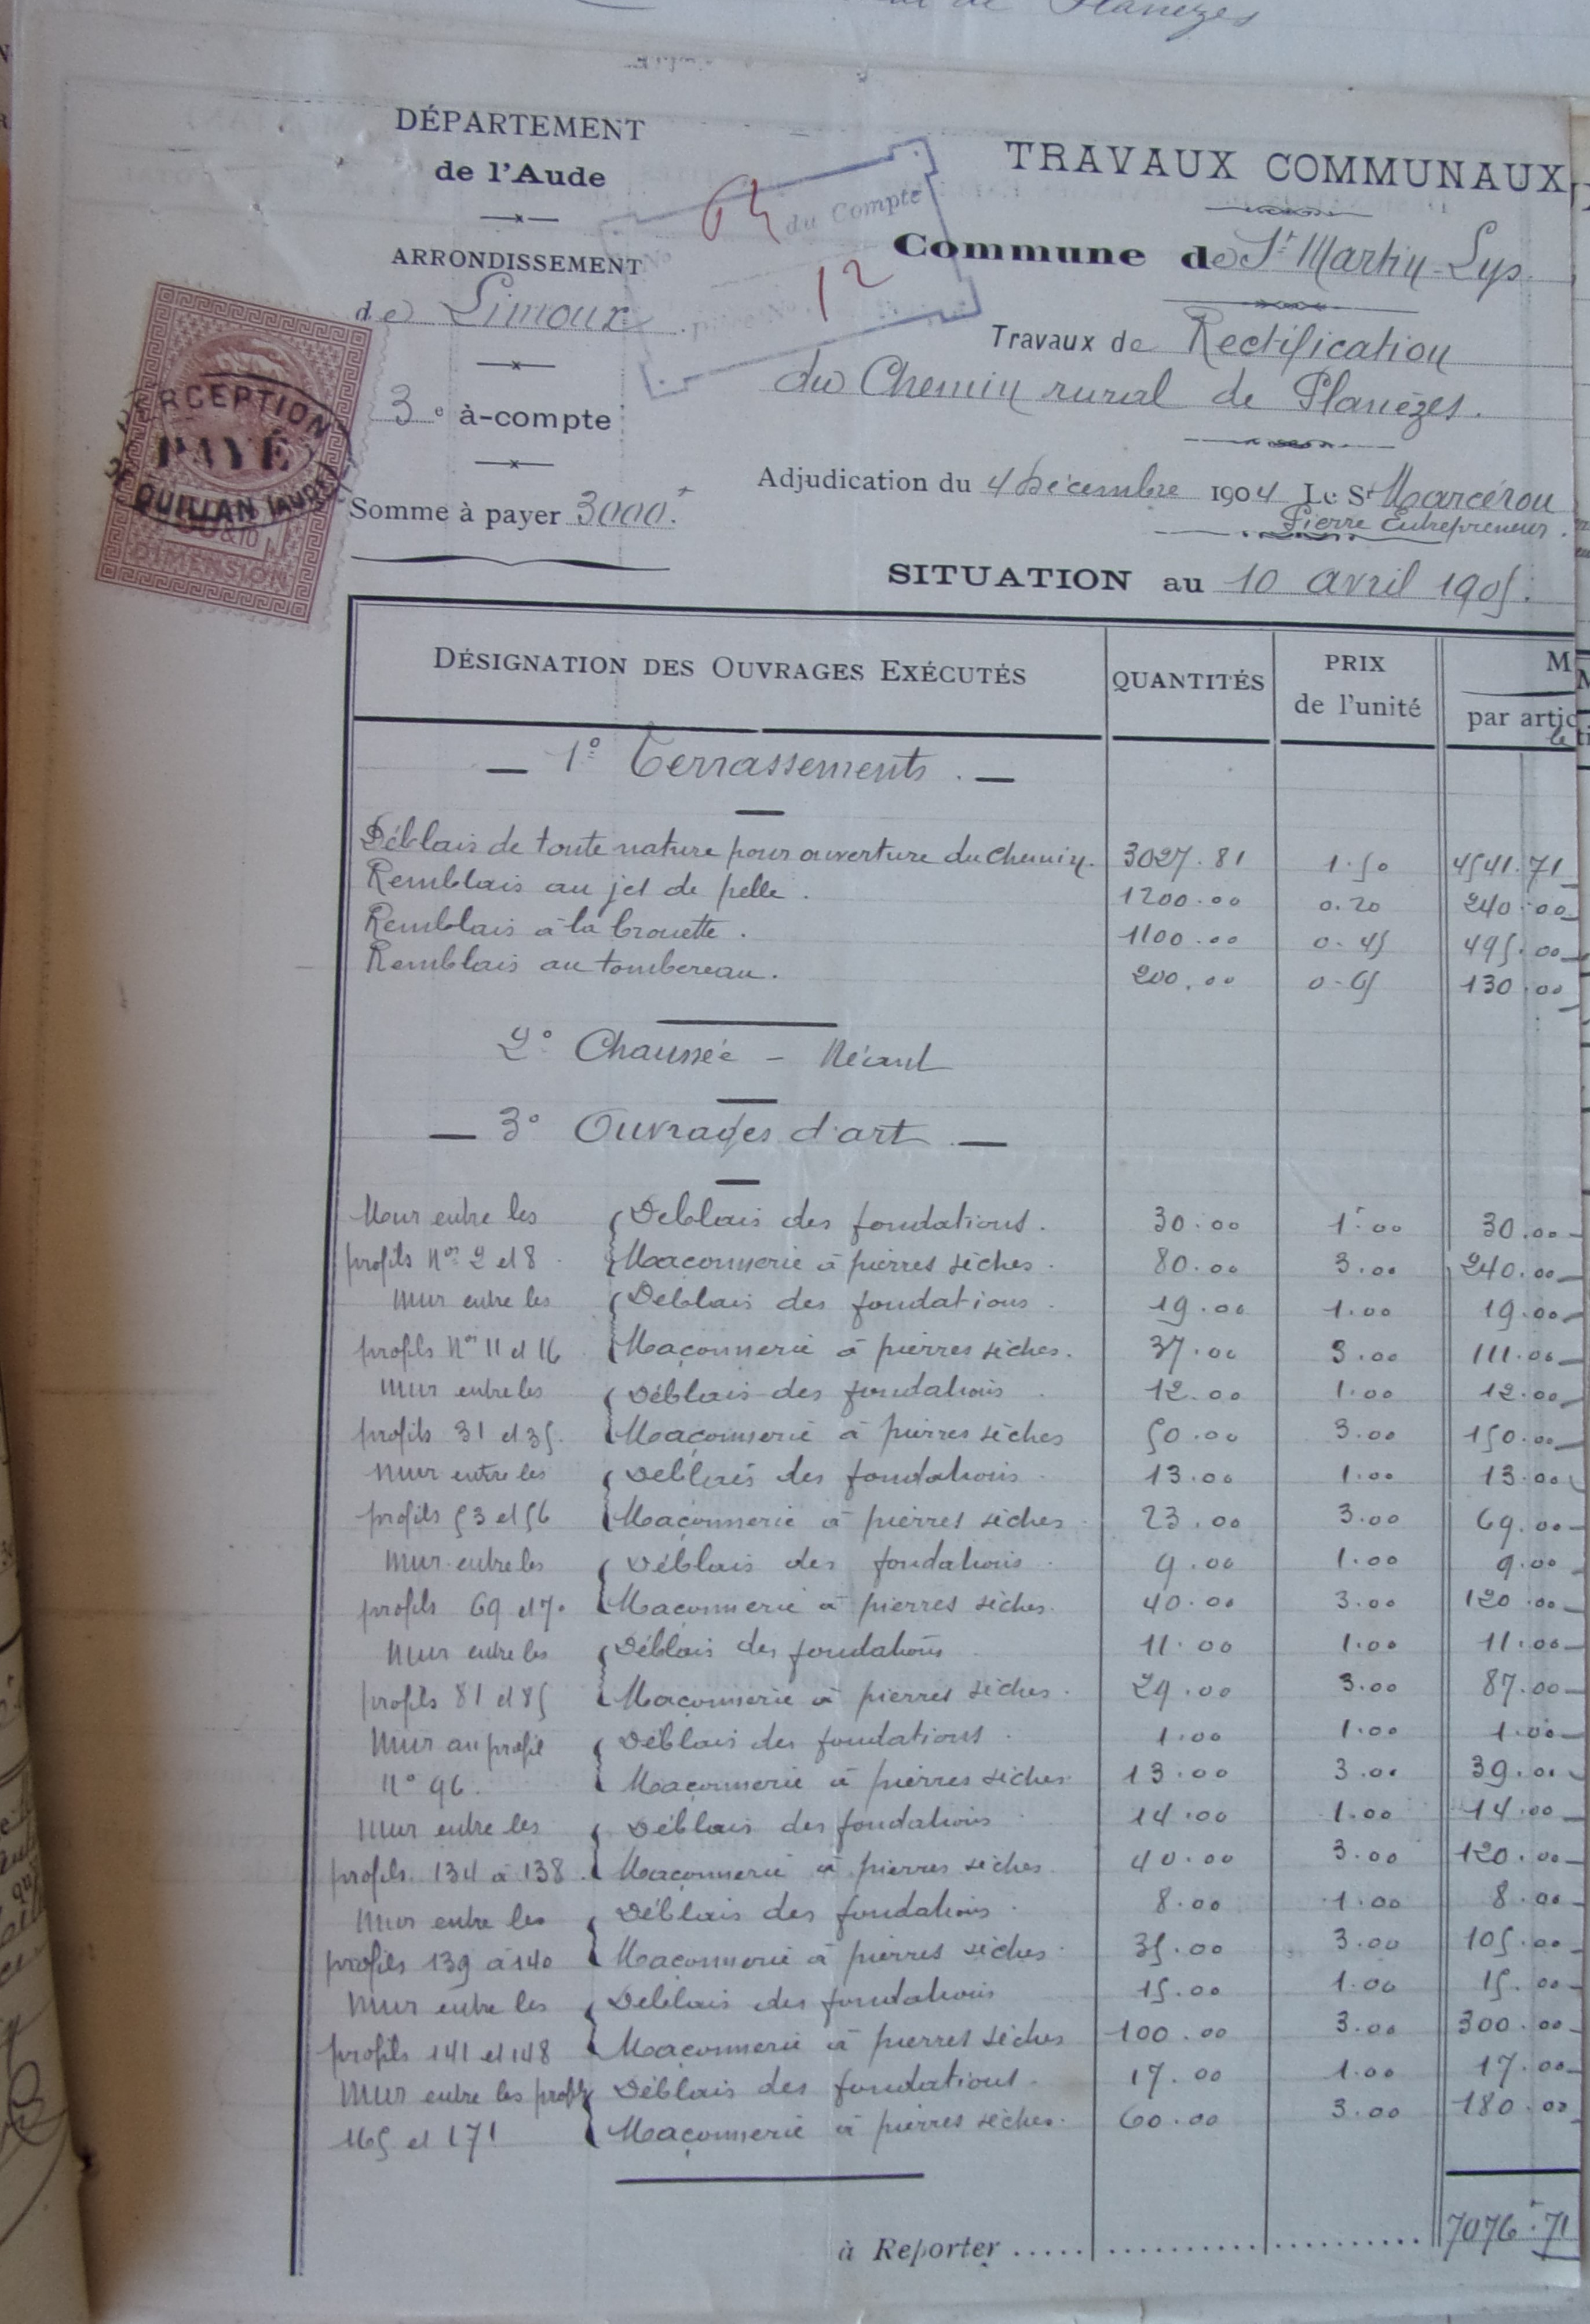 de Planèzes
DÉPARTEMENT
de l'Aude
ARRONDISSEMENT
de Limoux
3e à-compte
Somme à payer 3000f.
PERCEPTION
PAYÉ
DE QUILLAN (AUDE)
DIMENSION
No 64 du Compte
12
TRAVAUX COMMUNAUX
Commune de St Martin-Lys
Travaux de Rectification
du Chemin rural de Planèzes.
Adjudication du 4 Décembre 1904 Le Sr Marcérou
Pierre Entrepreneur.
SITUATION au 10 avril 1905.
DÉSIGNATION DES OUVRAGES EXÉCUTÉS QUANTITÉS PRIX de l'unité M
par artic
le
— 1° Terrassements. —
Déblais de toute nature pour ouverture du chemin. 3027.81 1.50 4541.71
Remblais au jet de pelle. 1200.00 0.20 240.00
Remblais à la brouette. 1100.00 0.45 495.00
Remblais au tombereau. 200.00 0.65 130.00
2° Chaussée - Néant
— 3° Ouvrages d'art —
Mur entre les Déblais des fondations. 30.00 1f00 30.00
profils Nos 2 et 8. Maçonnerie à pierres sèches. 80.00 3.00 240.00
Mur entre les Déblais des fondations. 19.00 1.00 19.00
profils Nos 11 et 16 Maçonnerie à pierres sèches. 37.00 3.00 111.00
Mur entre les Déblais des fondations. 12.00 1.00 12.00
profils 31 et 35. Maçonnerie à pierres sèches 50.00 3.00 150.00
Mur entre les Déblais des fondations. 13.00 1.00 13.00
profils 53 et 56 Maçonnerie à pierres sèches. 23.00 3.00 69.00
Mur entre les Déblais des fondations. 9.00 1.00 9.00
profils 69 et 70 Maçonnerie à pierres sèches. 40.00 3.00 120.00
Mur entre les Déblais des fondations 11.00 1.00 11.00
profils 81 et 85 Maçonnerie à pierres sèches. 29.00 3.00 87.00
Mur au profil Déblais des fondations. 1.00 1.00 1.00
N° 96. Maçonnerie à pierres sèches 13.00 3.00 39.00
Mur entre les Déblais des fondations. 14.00 1.00 14.00
profils 134 à 138. Maçonnerie à pierres sèches. 40.00 3.00 120.00
Mur entre les Déblais des fondations. 8.00 1.00 8.00
profils 139 à 140 Maçonnerie à pierres sèches. 35.00 3.00 105.00
Mur entre les Déblais des fondations 15.00 1.00 15.00
profils 141 et 148 Maçonnerie à pierres sèches 100.00 3.00 300.00
Mur entre les profils Déblais des fondations. 17.00 1.00 17.00
165 et 171 Maçonnerie à pierres sèches. 60.00 3.00 180.00
à Reporter ..... 7076f.71